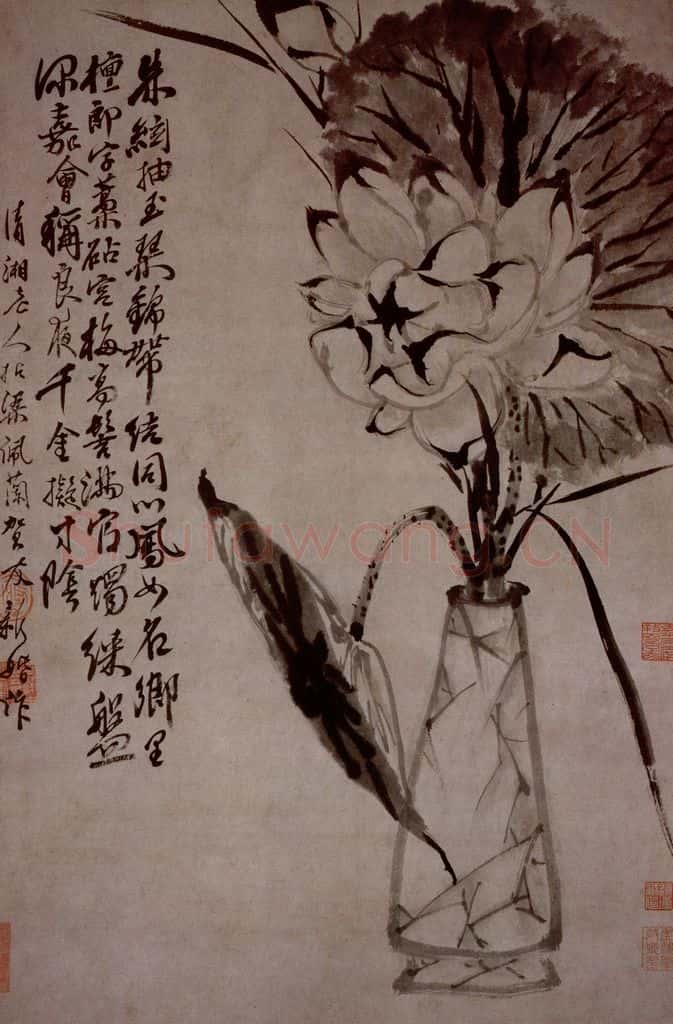 朱絃抽玉琴錦帶結同心鳳女名鄉里
檀郎字藁砧宮梅高髻滿官燭綵盤
深嘉會稱良夜千金擬寸陰
清湘老人拈梁佩蘭賀友新婚作
Shufawang.CN